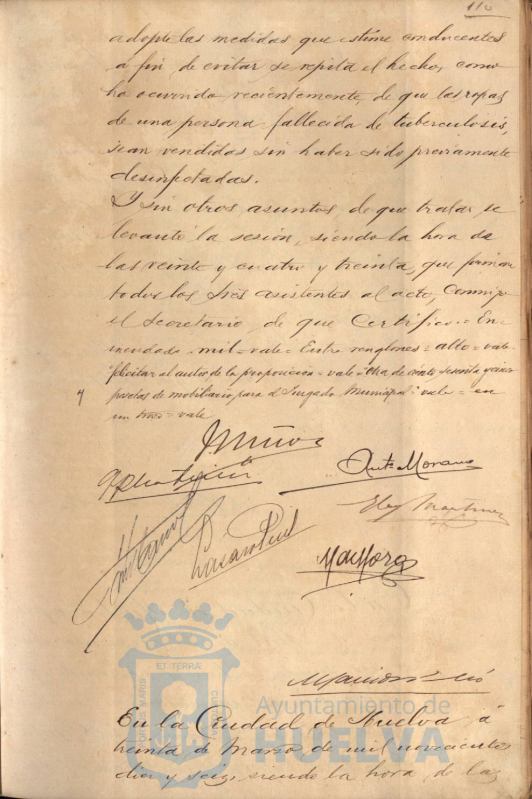 110
adopte las medidas que estime conducentes
a fin de evitar se repita el hecho, como
ha ocurrido recientemente, de que las ropas
de una persona fallecida de tuberculosis,
sean vendidas sin haber sido previamente
desinfectadas.
Y sin otros asuntos de que tratar se
levantó la sesión, siendo la hora de
las veinte y cuatro y treinta, que firman
todos los Sres asistentes al acto, conmigo
el Secretario, de que certifico.= En-
mendado = mil = vale = Entre renglones = alto = vale
felicitar al autor de la proposicion = vale = de ciento sesenta y cinco
pesetas de mobiliario para el Juzgado Municipal = vale = en
un = vale
Muñoz
Antº Moreno
Eloy Martinez
Lazaro
ET TERRA
CUSTODIA
PORTUS MARIS
Ayuntamiento de
HUELVA
En la Ciudad de Huelva á
treinta de Marzo de mil novecientos
diez y seis, siendo la hora de las